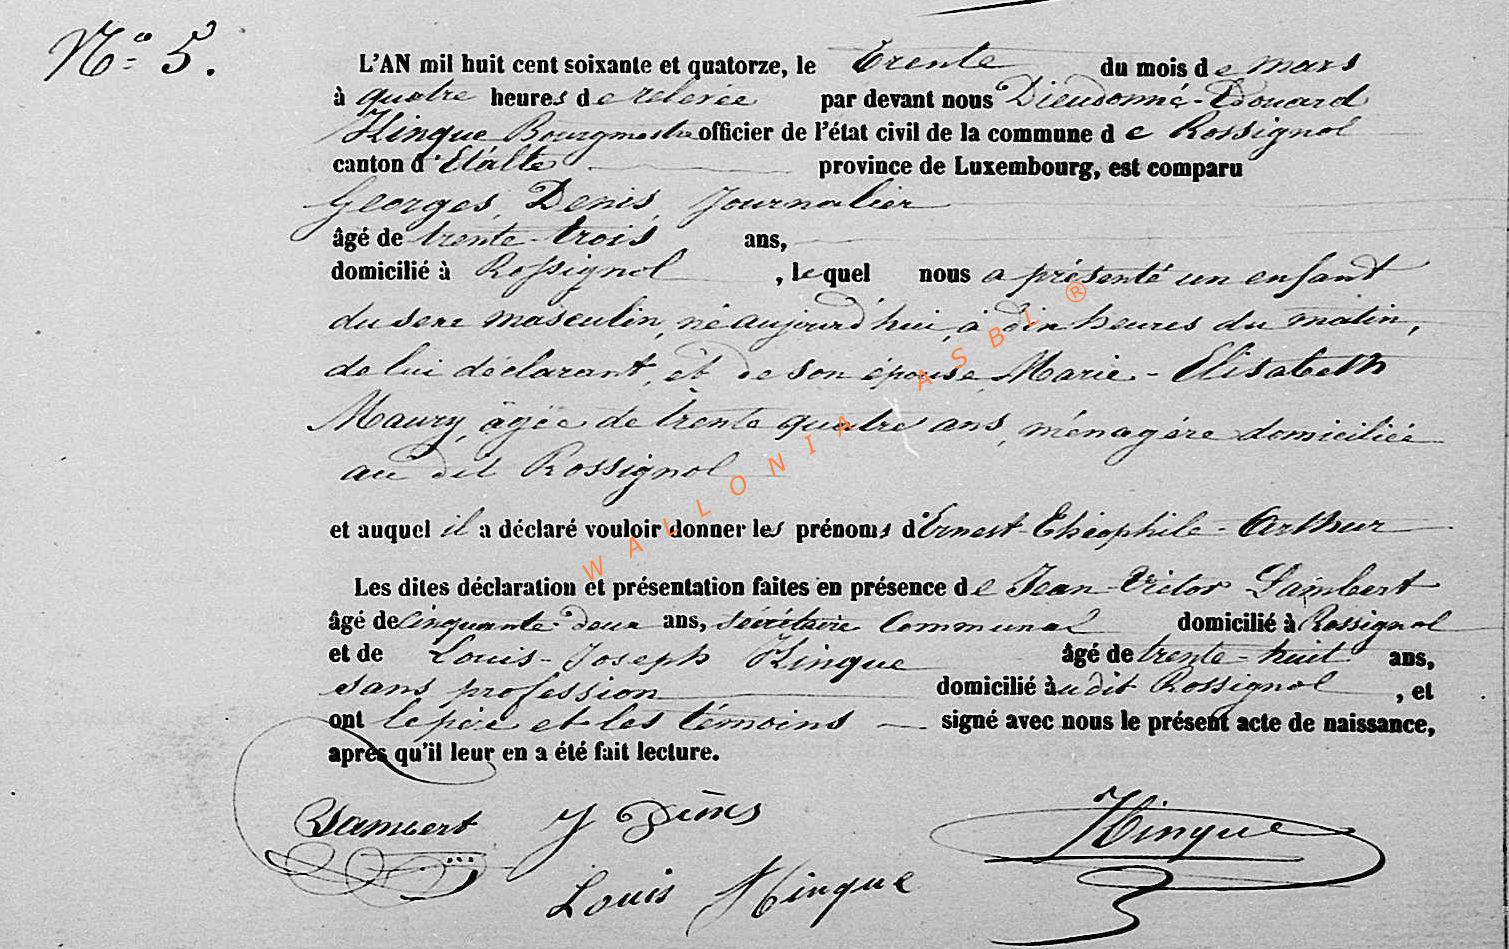 N° 5.
L'AN mil huit cent soixante et quatorze, le trente du mois de mars
à quatre heures de relevée par devant nous Dieudonné-Edouard
Hinque Bourgmestre officier de l'état civil de la commune de Rossignol
canton d'Etalle province de Luxembourg, est comparu
Georges Denis, Journalier
âgé de trente-trois ans,
domicilié à Rossignol, lequel nous a présenté un enfant
du sexe masculin, né aujourd'hui, à dix heures du matin,
de lui déclarant, et de son épouse Marie-Elisabeth
Maury, âgée de trente quatre ans, ménagère domiciliée
au dit Rossignol
et auquel il a déclaré vouloir donner les prénoms d'Ernest-Théophile-Arthur
Les dites déclaration et présentation faites en présence de Jean-Victor Lambert
âgé de cinquante-deux ans, secrétaire Communal domicilié à Rossignol
et de Louis-Joseph Hinque âgé de trente-huit ans,
sans profession domicilié au dit Rossignol, et
ont le père et les témoins signé avec nous le présent acte de naissance,
après qu'il leur en a été fait lecture.
Lambert Denis Hinque
Louis Hinque
WALLONIA ASBL ®